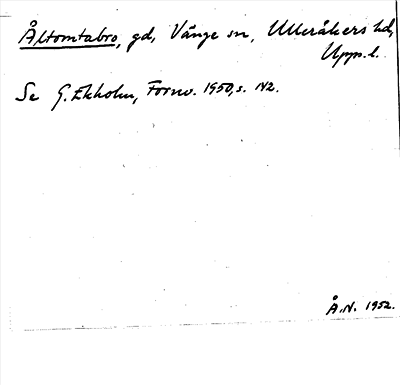 Åltomtabro, gd, Vänge sn, Ulleråkers hd,
Upps. l.
Se G. Ekholm, Fornv. 1950, s. 142.
Å. N. 1952.